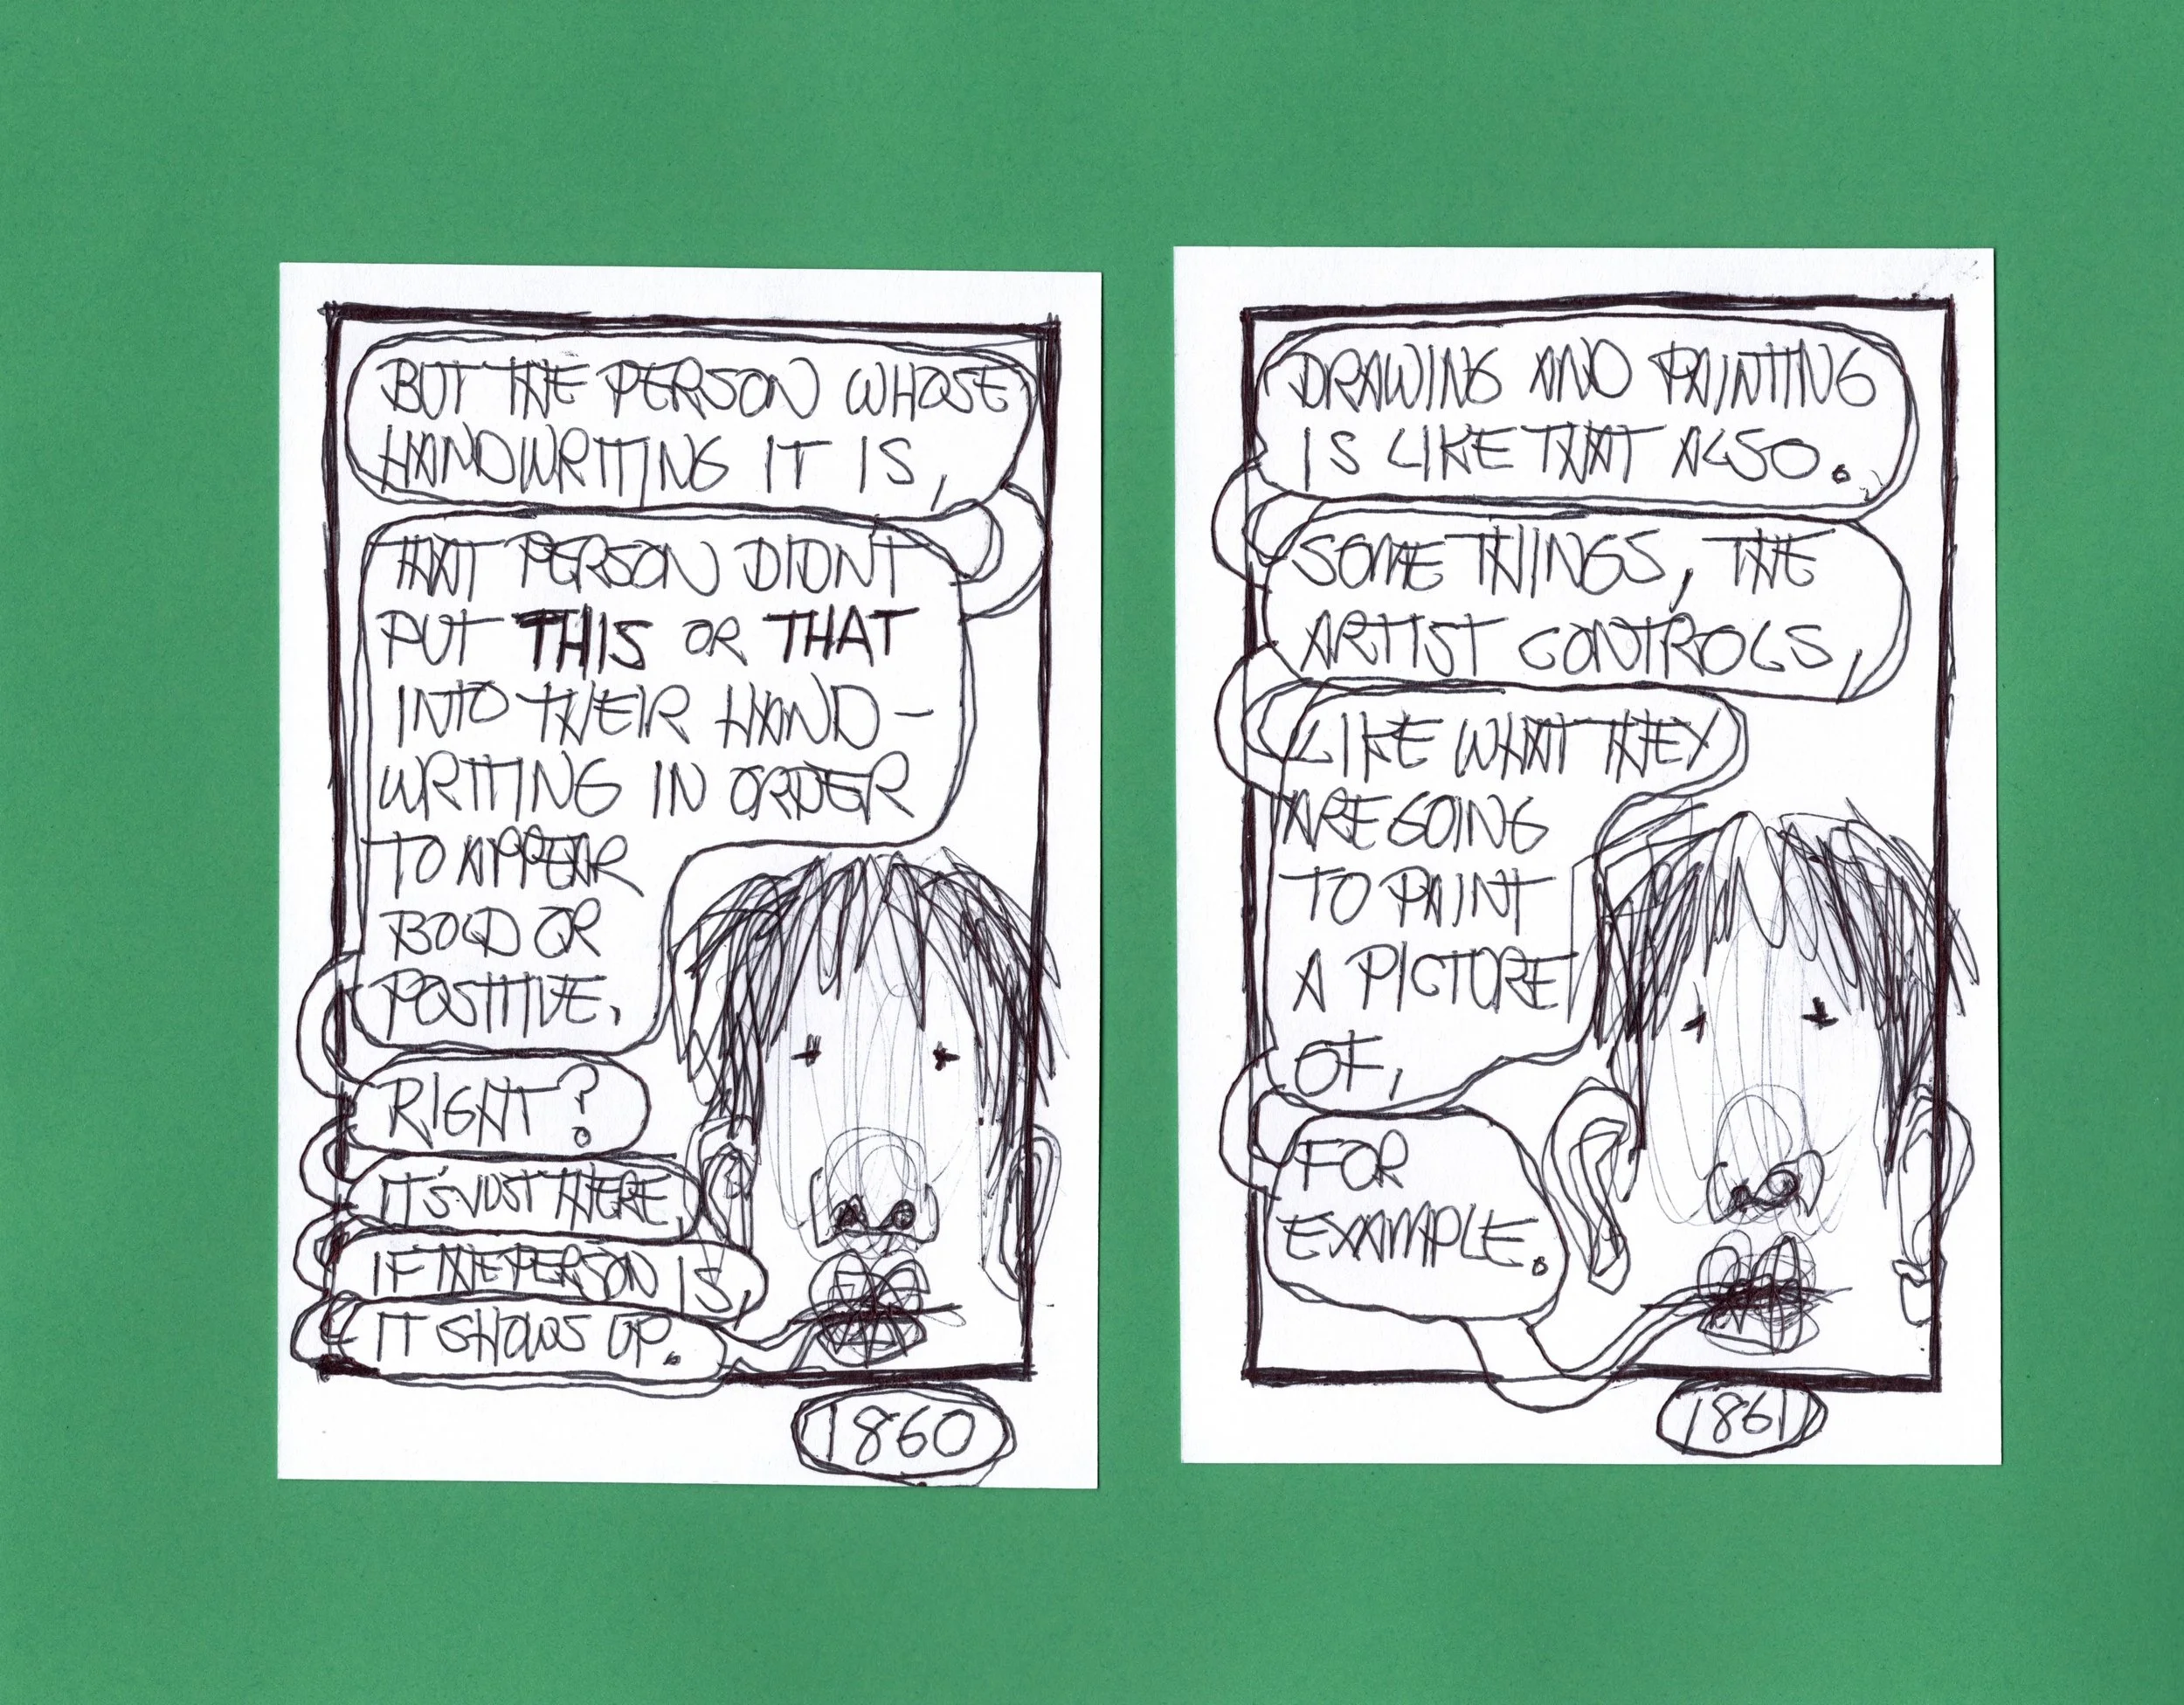 BUT THE PERSON WHOSE
HANDWRITING IT IS,
THAT PERSON DIDNT
PUT THIS OR THAT
INTO THEIR HAND-
WRITING IN ORDER
TO APPEAR
BOLD OR
POSITIVE.
RIGHT?
IT'S JUST THERE,
IF THE PERSON IS,
IT SHOWS UP.
1860
DRAWING AND PAINTING
IS LIKE THAT ALSO.
SOME THINGS, THE
ARTIST CONTROLS,
LIKE WHAT THEY
ARE GOING
TO PAINT
A PICTURE
OF,
FOR
EXAMPLE.
1861